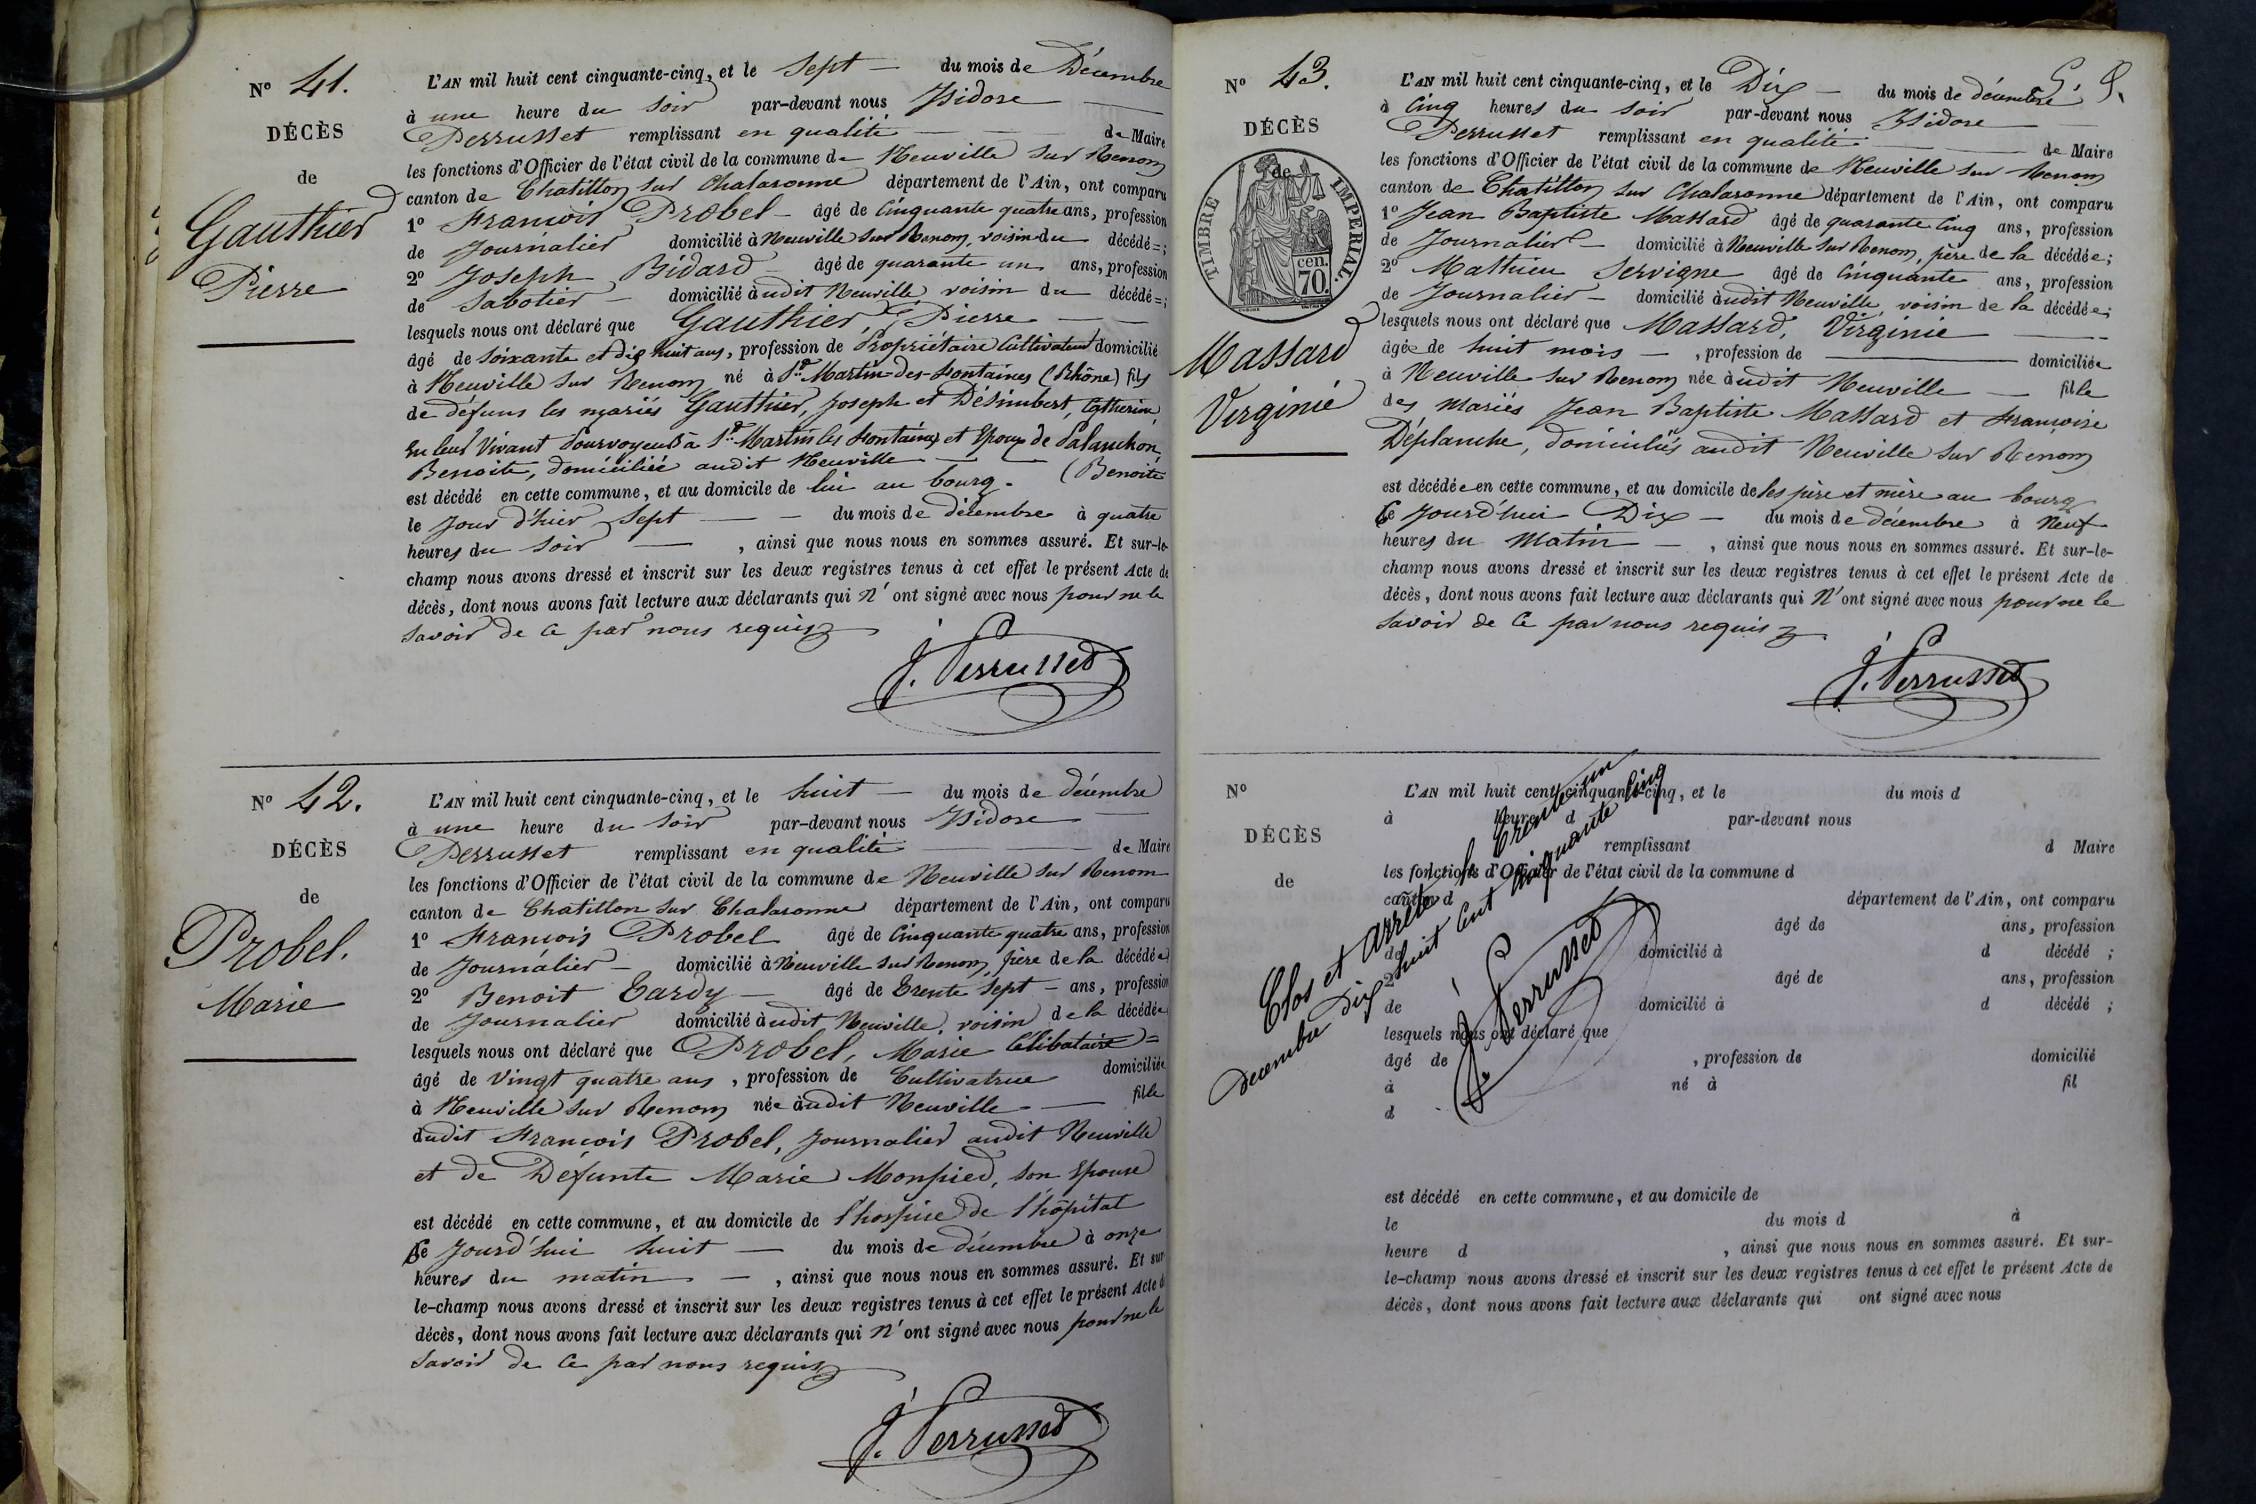 N° 41.
DÉCÈS
de
Gauthier
Pierre
L'AN mil huit cent cinquante-cinq, et le Sept — du mois de Décembre
à une heure du soir par-devant nous Isidore —
Perrusset remplissant en qualité — — de Maire
les fonctions d'Officier de l'état civil de la commune de Neuville sur Renom
canton de Chatillon sur Chalaronne département de l'Ain, ont comparu
1° François Probel — âgé de Cinquante quatre ans, profession
de Journalier domicilié à Neuville sur Renom, voisin du décédé = ;
2° Joseph Bidard — âgé de quarante un ans, profession
de Sabotier — domicilié audit Neuville voisin du décédé = ;
lesquels nous ont déclaré que Gauthier, Pierre — —
âgé de soixante et dix huit ans, profession de Propriétaire Cultivateur domicilié
à Neuville sur Renom né à St. Martin-des-Fontaines (Rhône) fils
de défuns les mariés Gauthier, Joseph et Désimbert, Catherine,
en leur vivant à St. Martin les Fontaines et Epoux de Salanchon,
Benoite, domiciliée audit Neuville — — (Benoite
est décédé en cette commune, et au domicile de lui au bourg.
le jour d'hier Sept — — du mois de décembre à quatre
heures du soir — , ainsi que nous nous en sommes assuré. Et sur-le-
champ nous avons dressé et inscrit sur les deux registres tenus à cet effet le présent Acte de
décès, dont nous avons fait lecture aux déclarants qui n'ont signé avec nous pour ne le
savoir de ce par nous requis
J. Perrusset
N° 42.
DÉCÈS
de
Probel.
Marie
L'AN mil huit cent cinquante-cinq, et le huit — du mois de décembre
à une heure du soir par-devant nous Isidore —
Perrusset remplissant en qualité — — de Maire
les fonctions d'Officier de l'état civil de la commune de Neuville sur Renom
canton de Chatillon sur Chalaronne département de l'Ain, ont comparu
1° François Probel âgé de Cinquante quatre ans, profession
de Journalier — domicilié à Neuville sur Renom, père de la décédée
2° Benoit Tardy — âgé de Trente Sept — ans, profession
de Journalier domicilié audit Neuville, voisin de la décédée
lesquels nous ont déclaré que Probel, Marie Célibataire =
âgé de vingt quatre ans, profession de Cultivatrice domiciliée
à Neuville sur Renom née audit Neuville — fille
dudit François Probel, journalier audit Neuville
et de Défunte Marie Monpied, son Epouse
est décédé en cette commune, et au domicile de l'hospice de l'hôpital
Ce jourd'hui huit — du mois de décembre à onze
heures du matin — , ainsi que nous nous en sommes assuré. Et sur
le-champ nous avons dressé et inscrit sur les deux registres tenus à cet effet le présent Acte d
décès, dont nous avons fait lecture aux déclarants qui n'ont signé avec nous pour ne le
savoir de ce par nous requis
J. Perrusset
N° 43.
DÉCÈS
de
TIMBRE IMPERIAL.
cen.
70.
Massard
Virginie
L'AN mil huit cent cinquante-cinq, et le Dix — du mois de décembre
à Cinq heures du soir par-devant nous Isidore —
Perrusset remplissant en qualité — — de Maire
les fonctions d'Officier de l'état civil de la commune de Neuville sur Renom
canton de Chatillon sur Chalaronne département de l'Ain, ont comparu
1° Jean Baptiste Massard âgé de quarante Cinq ans, profession
de Journalier — domicilié à Neuville sur Renom, père de la décédée ;
2° Mathieu Servigne âgé de Cinquante ans, profession
de Journalier — domicilié audit Neuville voisin de la décédée ;
lesquels nous ont déclaré que Massard, Virginie —
âgée de huit mois — , profession de — domiciliée
à Neuville sur Renom née audit Neuville — fille
des mariés Jean Baptiste Massard et Françoise
Déplanche, domiciliés audit Neuville sur Renom
est décédée en cette commune, et au domicile de ses père et mère au bourg
Ce jourd'hui Dix — du mois de décembre à Neuf
heures du Matin — , ainsi que nous nous en sommes assuré. Et sur-le-
champ nous avons dressé et inscrit sur les deux registres tenus à cet effet le présent Acte de
décès, dont nous avons fait lecture aux déclarants qui n'ont signé avec nous pour ne le
savoir de ce par nous requis
J. Perrusset
N°
DÉCÈS
de
L'AN mil huit cent cinquante-cinq, et le du mois d
à heure d par-devant nous
remplissant d Maire
les fonctions d'Officier de l'état civil de la commune d
canton d département de l'Ain, ont comparu
âgé de ans, profession
de domicilié à d décédé ;
2° âgé de ans, profession
de domicilié à d décédé ;
lesquels nous ont déclaré que
âgé de , profession de domicilié
à né à fil
d
est décédé en cette commune, et au domicile de
le du mois d à
heure d , ainsi que nous nous en sommes assuré. Et sur-
le-champ nous avons dressé et inscrit sur les deux registres tenus à cet effet le présent Acte de
décès, dont nous avons fait lecture aux déclarants qui ont signé avec nous
Clos et arrêté le trente un
décembre Dix huit cent cinquante cinq
J. Perrusset